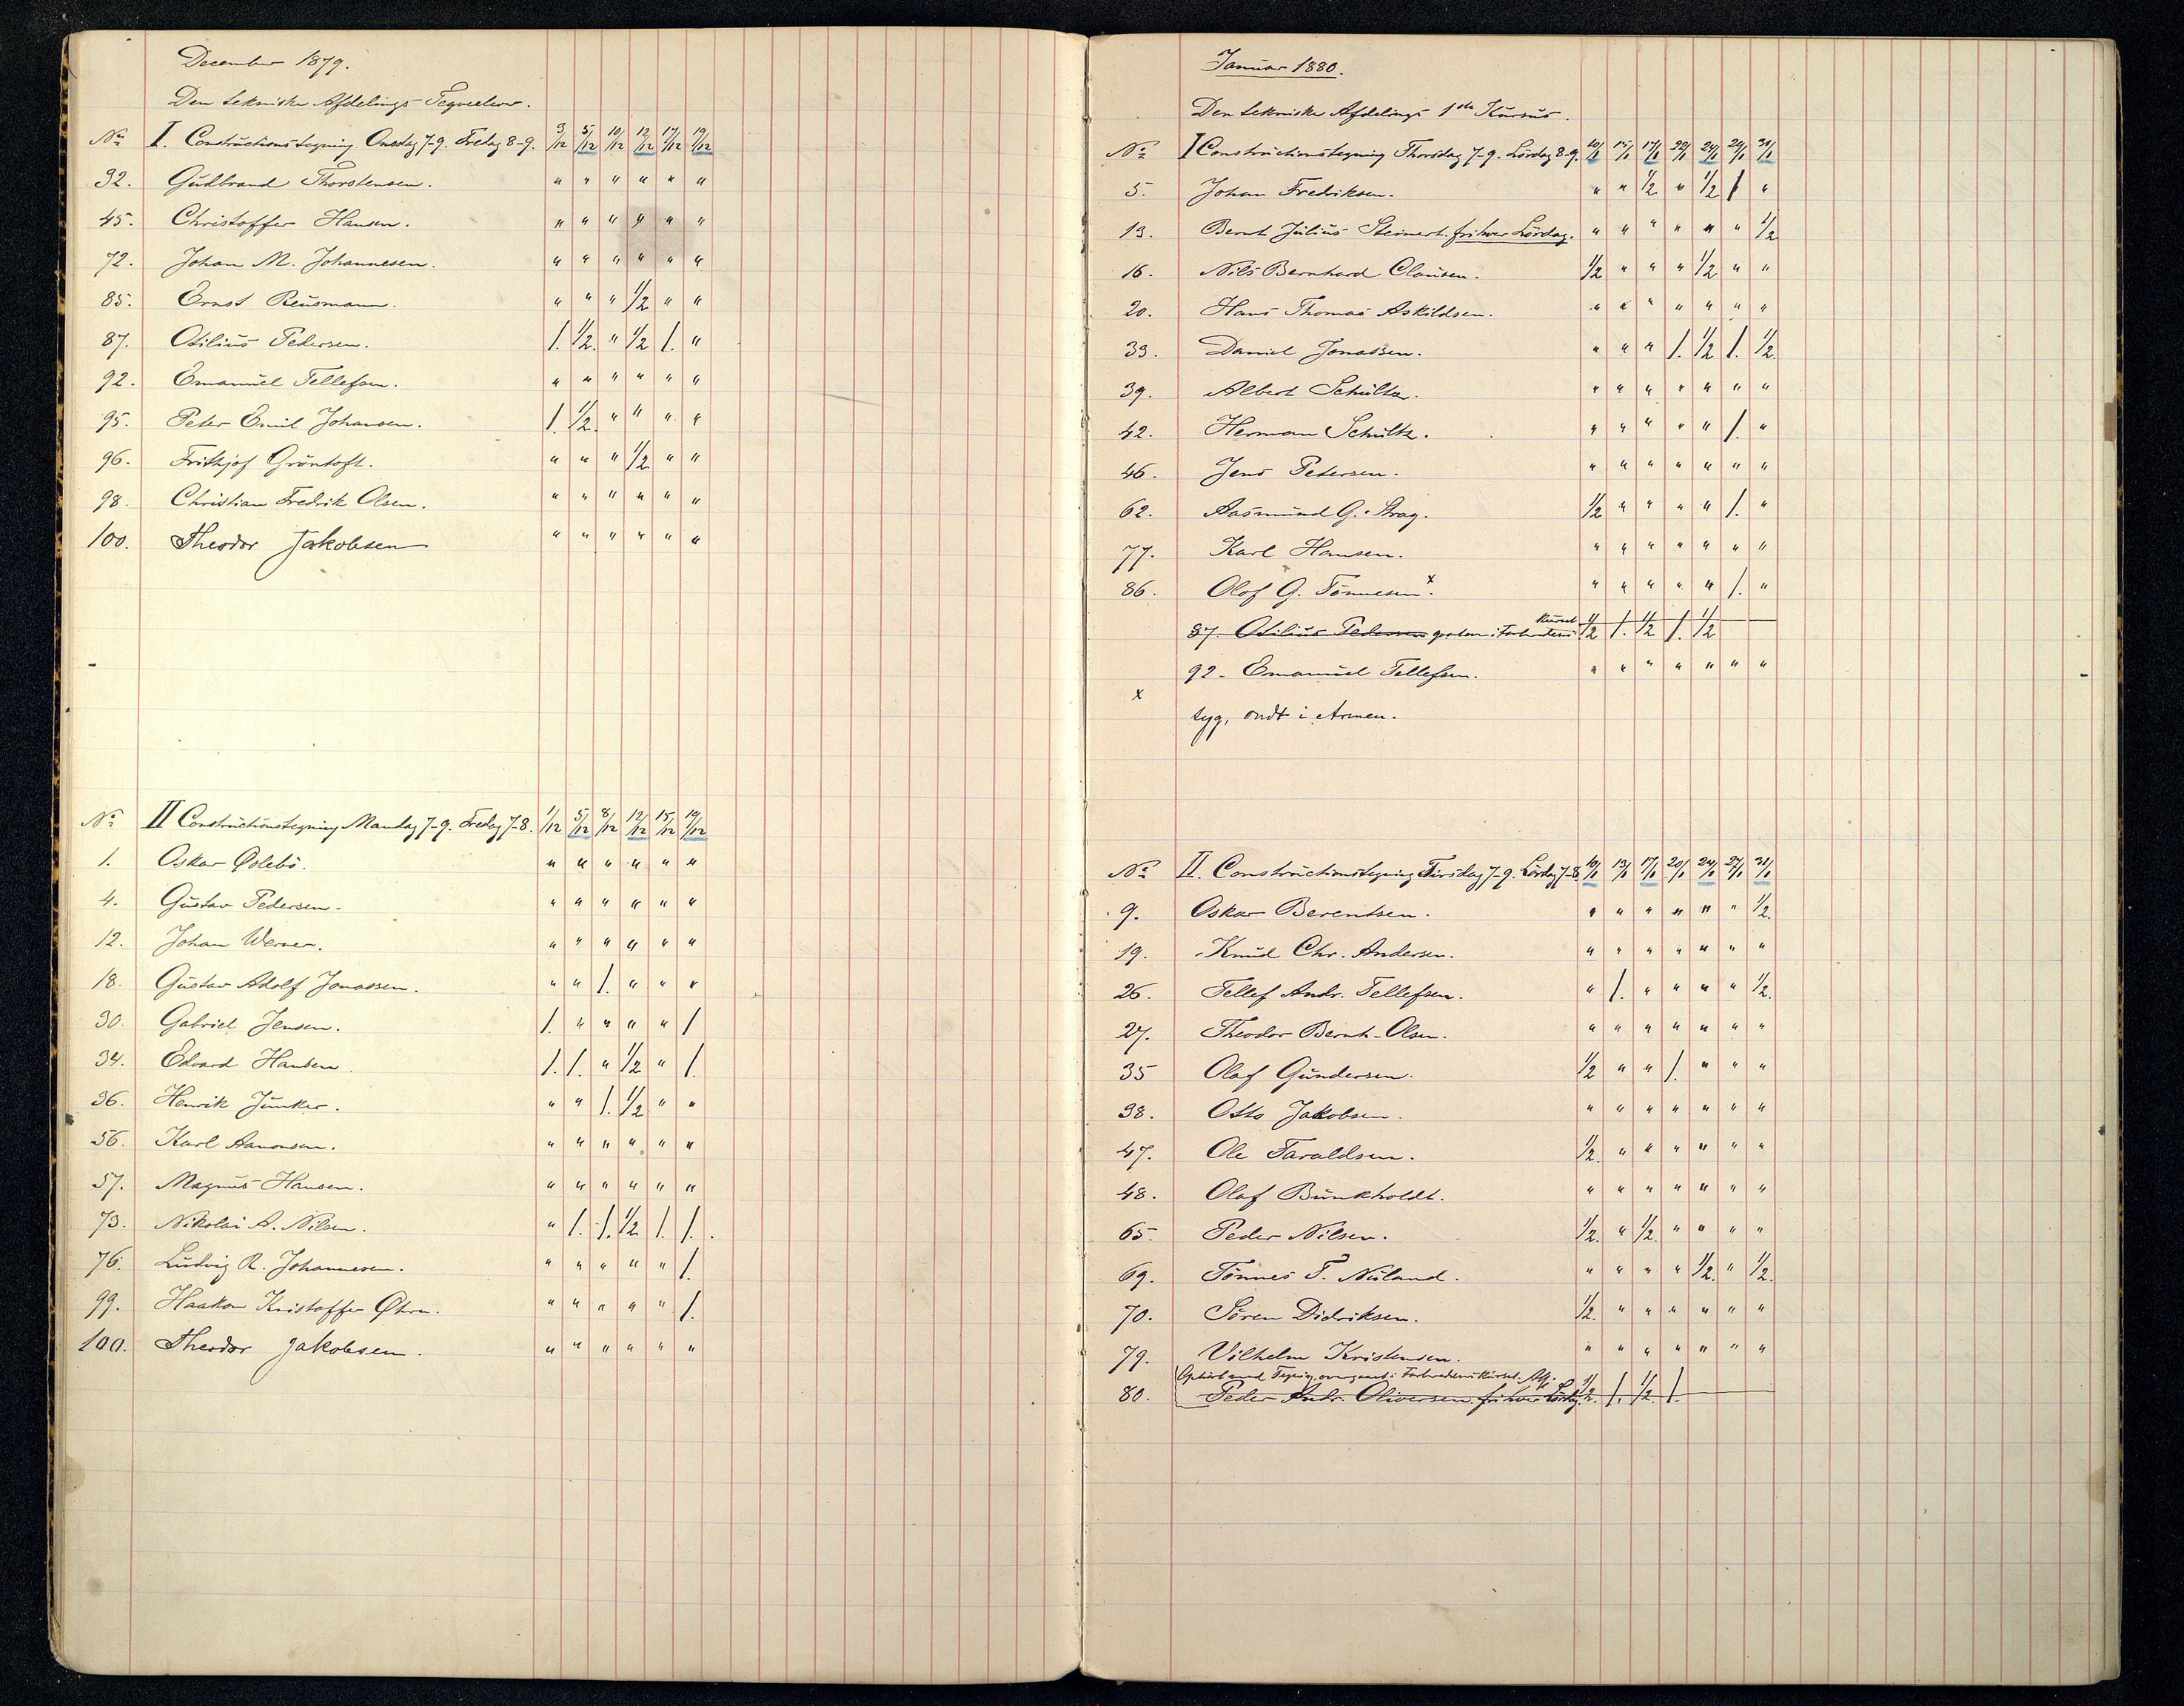 December 1879.
Den tekniske Afdelings
No I. Constructionstegning Onsdag 7-9. Fredag 8-9. 3/12 5/12 10/12 12/12 17/12 19/12
32. Gudbrand Thorstensen. " " " " " "
45. Christoffer Hansen. " " " " " "
72. Johan M. Johannesen. " " " " " "
85. Ernst Reusmann. " " " 1/2 " "
87. Otilius Pedersen. 1. 1/2. " 1/2 1. "
92. Emanuel Tellefsen. " " " " " "
95. Peter Emil Johansen. 1. 1/2. " " " "
96. Frithjof Gröntoft. " " " 1/2 " "
98. Christian Fredrik Olsen. " " " " " "
100. Theodor Jakobsen " " " " " "
No II Constructionstegning Mandag 7-9. Fredag 7-8. 1/12 5/12 8/12 12/12 15/12 19/12
1. Oskar Øslebö. " " " " " "
4. Gustav Pedersen. " " " " " "
12. Johan Werner. " " " " " "
18. Gustav Adolf Jonassen. " " 1. " " "
30. Gabriel Jensen. 1. " " " " 1
34. Edvard Hansen. 1. 1. " 1/2 " 1.
36. Henrik Junker. " " 1. 1/2 " "
56. Karl Aanonsen. " " " " " "
57. Magnus Hansen. " " " " " "
73. Nikolai A. Nilsen. " 1. 1. 1/2 1. 1.
76. Ludvig R. Johannesen. " " " " " 1.
99. Haakon Kristoffer Øhrn. " " " " " 1.
100. Theodor Jakobsen. " " " " " "
Januar 1880.
Den tekniske Afdelings 1ste Kursus.
No I Constructionstegning Thorsdag 7-9. Lördag 8-9. 10/1 15/1 17/1 22/1 24/1 29/1 31/1
5. Johan Fredriksen. " " 1/2 " 1/2 1 "
13. Bernt Julius Steinert. fri hver Lördag. " " " " " " 1/2
16. Nils Bernhard Clausen. 1/2 " " " 1/2 " "
20. Hans Thomas Askildsen. " " " " " " "
33. Daniel Jonassen. " " " 1. 1/2 1. 1/2.
39. Albert Schultz. " " " " " " "
42. Herman Schultz. " " " " " 1. "
46. Jens Petersen. " " " " " " "
62. Aasmund G. Strag. 1/2 " " " " 1. "
77. Karl Hansen. " " " " " " "
86. Olof G. Tönnesen x. " " " " " 1. "
87. Otilius Pedersen i Forberedens Kurset 1/2 1. 1/2 1. 1/2
92. Emanuel Tellefsen. " " " " " " "
x
syg, ondt i Armen.
No II. Constructionstegning Tirsdag 7-9. Lördag 7-8. 10/1 13/1 17/1 20/1 24/1 27/1 31/1
9. Oskar Berentsen. " " " " " " 1/2.
19. Knud Chr. Andersen. " " " " " " "
26. Tellef Andr. Tellefsen. " 1. " " " " 1/2.
27. Theodor Bernh. Olsen. " " " " " " "
35 Olaf Gundersen. 1/2 " " 1. " " "
38. Otto Jakobsen. " " " " " " "
47. Ole Taraldsen. 1/2. " " " " " "
48. Olaf Bunkholdt. " " " " " " "
65. Peder Nilsen. 1/2. " 1/2. " " " "
69. Tönnes T. Nuland. " " " " 1/2. " 1/2.
70. Sören Didriksen. 1/2. " " " " " "
79. Vilhelm Kristensen. " " " " " " "
Ophört med Tegning, overgaaet i Forberedens Kurset.
80. Peder Andr. Oliversen. fri hver Lördag. 1/2. 1. 1/2. 1.